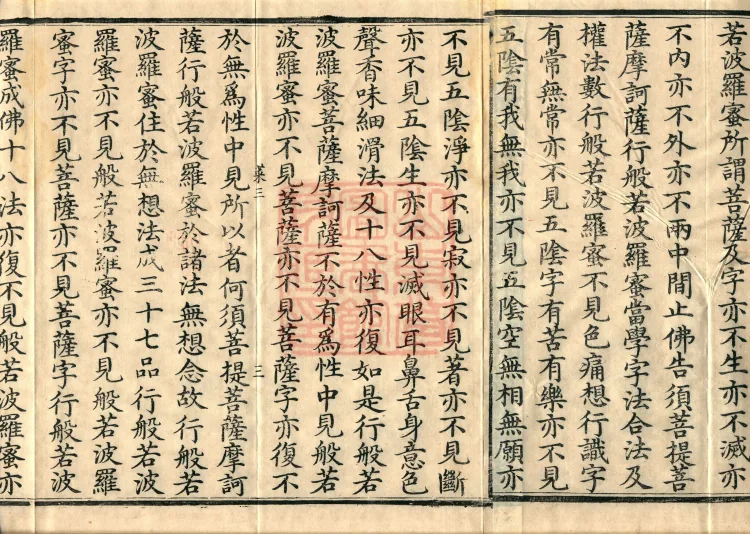 若波羅蜜所謂菩薩及字亦不生亦不滅亦
不內亦不外亦不兩中間止佛告須菩提菩
薩摩訶薩行般若波羅蜜當學字法合法及
權法數行般若波羅蜜不見色痛想行識字
有常無常亦不見五陰字有苦有樂亦不見
五陰有我無我亦不見五陰空無相無願亦
不見五陰淨亦不見寂亦不見著亦不見斷
亦不見五陰生亦不見滅眼耳鼻舌身意色
聲香味細滑法及十八性亦復如是行般若
波羅蜜菩薩摩訶薩不於有為性中見般若
波羅蜜亦不見菩薩亦不見菩薩字亦復不
菜三 三
於無為性中見所以者何須菩提菩薩摩訶
薩行般若波羅蜜於諸法無想念故行般若
波羅蜜住於無想法成三十七品行般若波
羅蜜亦不見般若波羅蜜亦不見般若波羅
蜜字亦不見菩薩亦不見菩薩字行般若波
羅蜜成佛十八法亦復不見般若波羅蜜亦